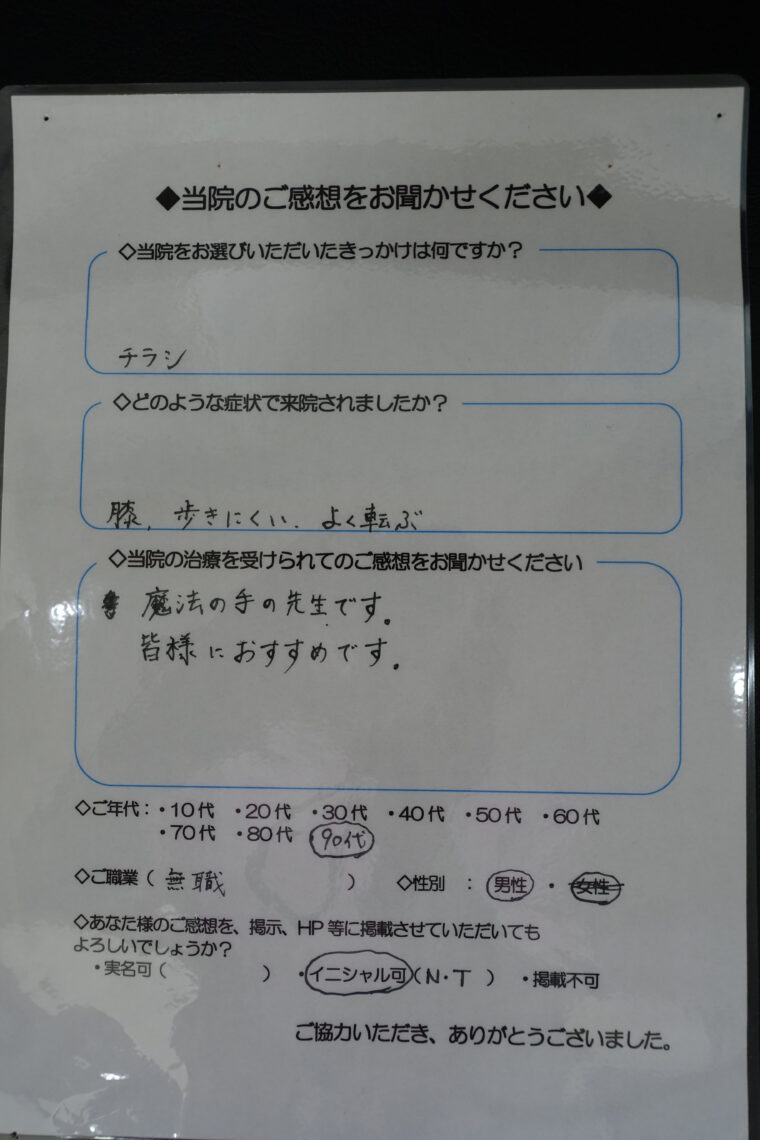 ◆当院のご感想をお聞かせください◆
◇当院をお選びいただいたきっかけは何ですか？
チラシ
◇どのような症状で来院されましたか？
膝、歩きにくい、よく転ぶ
◇当院の治療を受けられてのご感想をお聞かせください
魔法の手の先生です。
皆様におすすめです。
◇ご年代：・10代 ・20代 ・30代 ・40代 ・50代 ・60代
・70代 ・80代 90代
◇ご職業（無職 ） ◇性別 ： 男性 ・ 女性
◇あなた様のご感想を、掲示、HP等に掲載させていただいても
よろしいでしょうか？
・実名可（ ） ・イニシャル可（N・T ） ・掲載不可
ご協力いただき、ありがとうございました。